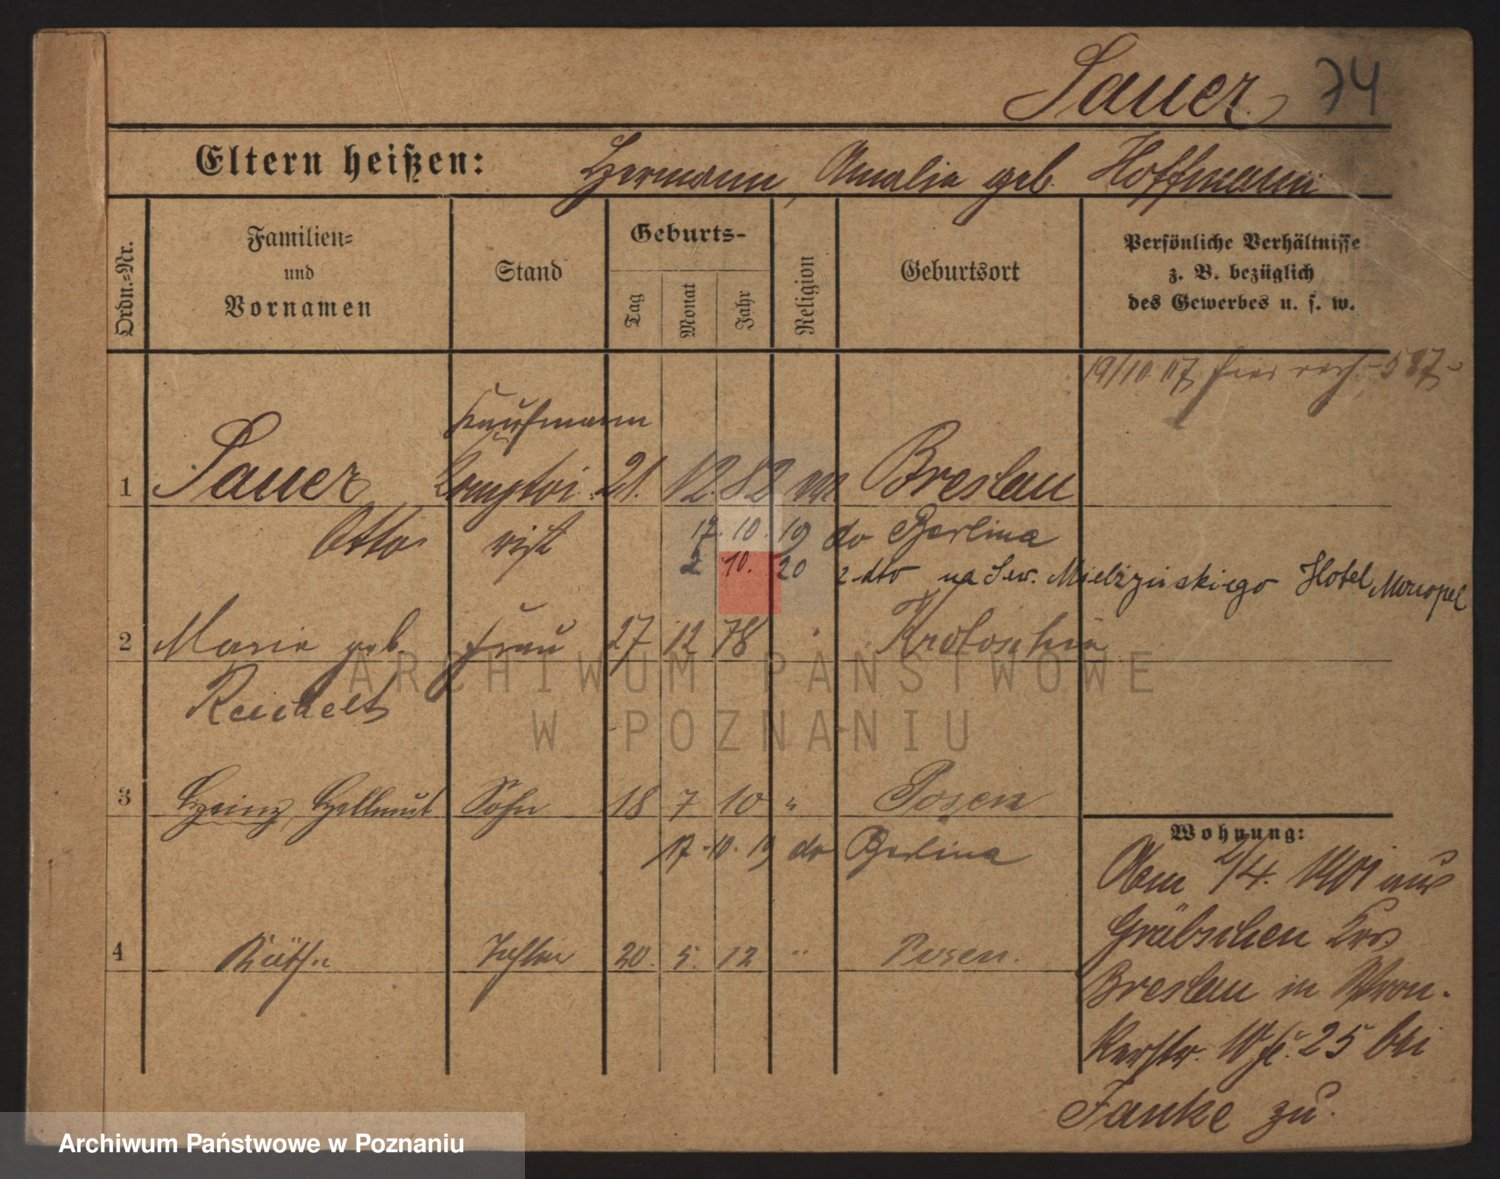 Sauer 74
Eltern heißen: Hermann, Amalie geb. Hoffmann
Ordn.-Nr.
Familien-
und
Vornamen
Stand
Geburts-
Tag
Monat
Jahr
Religion
Geburtsort
Persönliche Verhältnisse
z. B. bezüglich
des Gewerbes u. s. w.
19/10 07
Kaufmann
1 Sauer Comptoi 21. 12. 82 Breslau
Otto rist
17. 10. 19 do Berlina
2 10. 20 z dto na Św. Mielżyńskiego Hotel Monopol
2 Marie geb. Frau 27 12 78 Krotoschin
Reichelt
ARCHIWUM PAŃSTWOWE
W POZNANIU
3 Heinz Hellmut Sohn 18 7 10 " Posen
17. 10. 19 do Berlina
4 Käthe Tochter 20. 5. 12 " Posen.
Wohnung:
Am 2/4. 1901 aus
Gräbschen Krs
Breslau in Wron-
kerstr. 10 25 bei
Fanke zu.
Archiwum Państwowe w Poznaniu